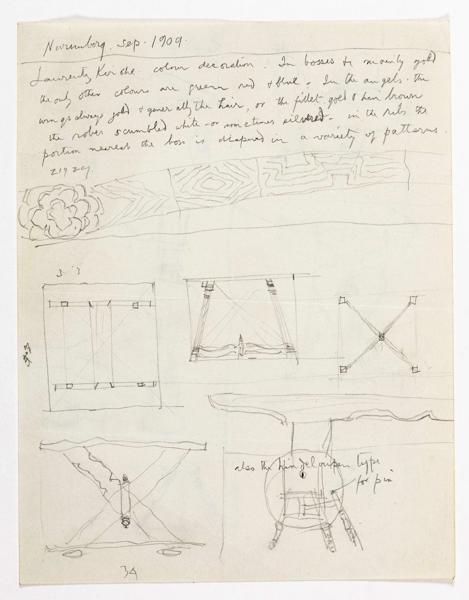 Nuremberg. Sep. 1909.
Laurentz Kirche. colour decoration. In bosses &c mainly gold
the only other colours are green red & blue. In the angels. the
wings always gold & generally the hair, or the fillet gold & hair brown
the robes scumbled white or sometimes silvered. in the ribs the
portion nearest the boss is diapered in a variety of patterns.
zigzag
also the Hindeloopen type
for pin
34